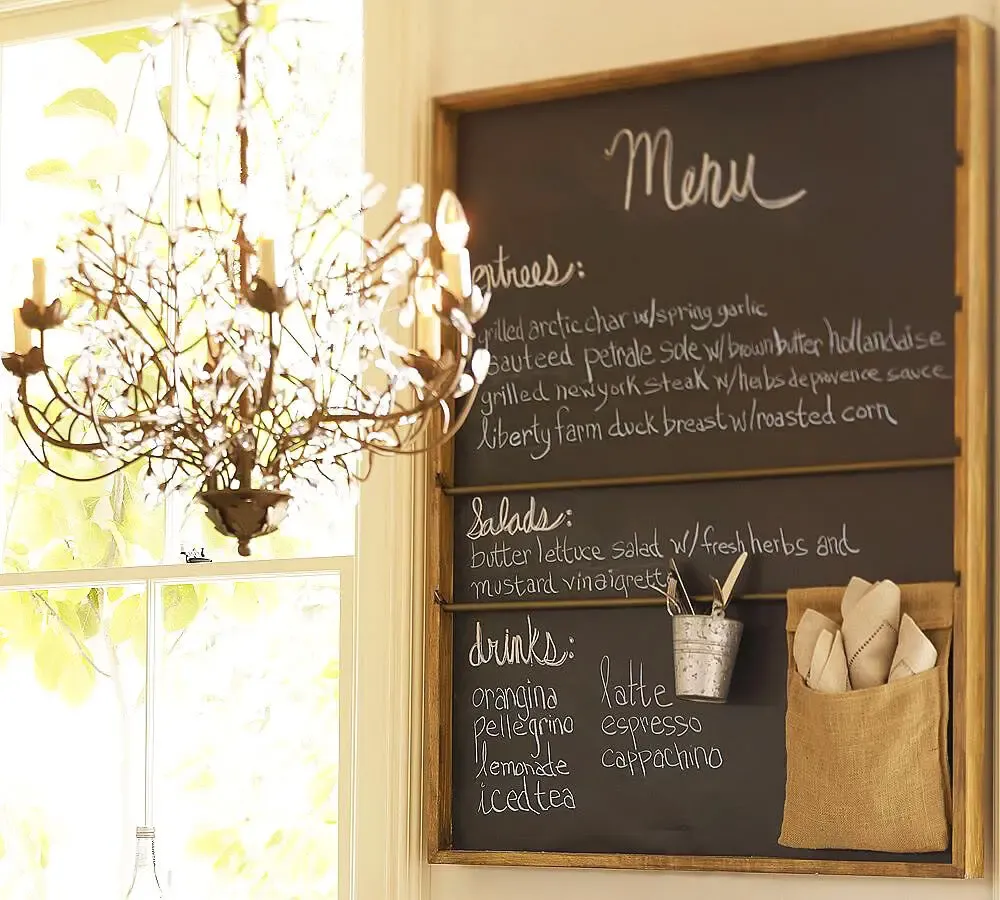 Menu
entrees:
grilled arctic char w/spring garlic
sauteed petrale sole w/brown butter hollandaise
grilled new york steak w/herbs de pavence sauce
liberty farm duck breast w/roasted corn
Salads:
butter lettuce salad w/fresh herbs and
mustard vinaigrette
drinks:
orangina
pellegrino
lemonade
iced tea
latte
espresso
cappachino